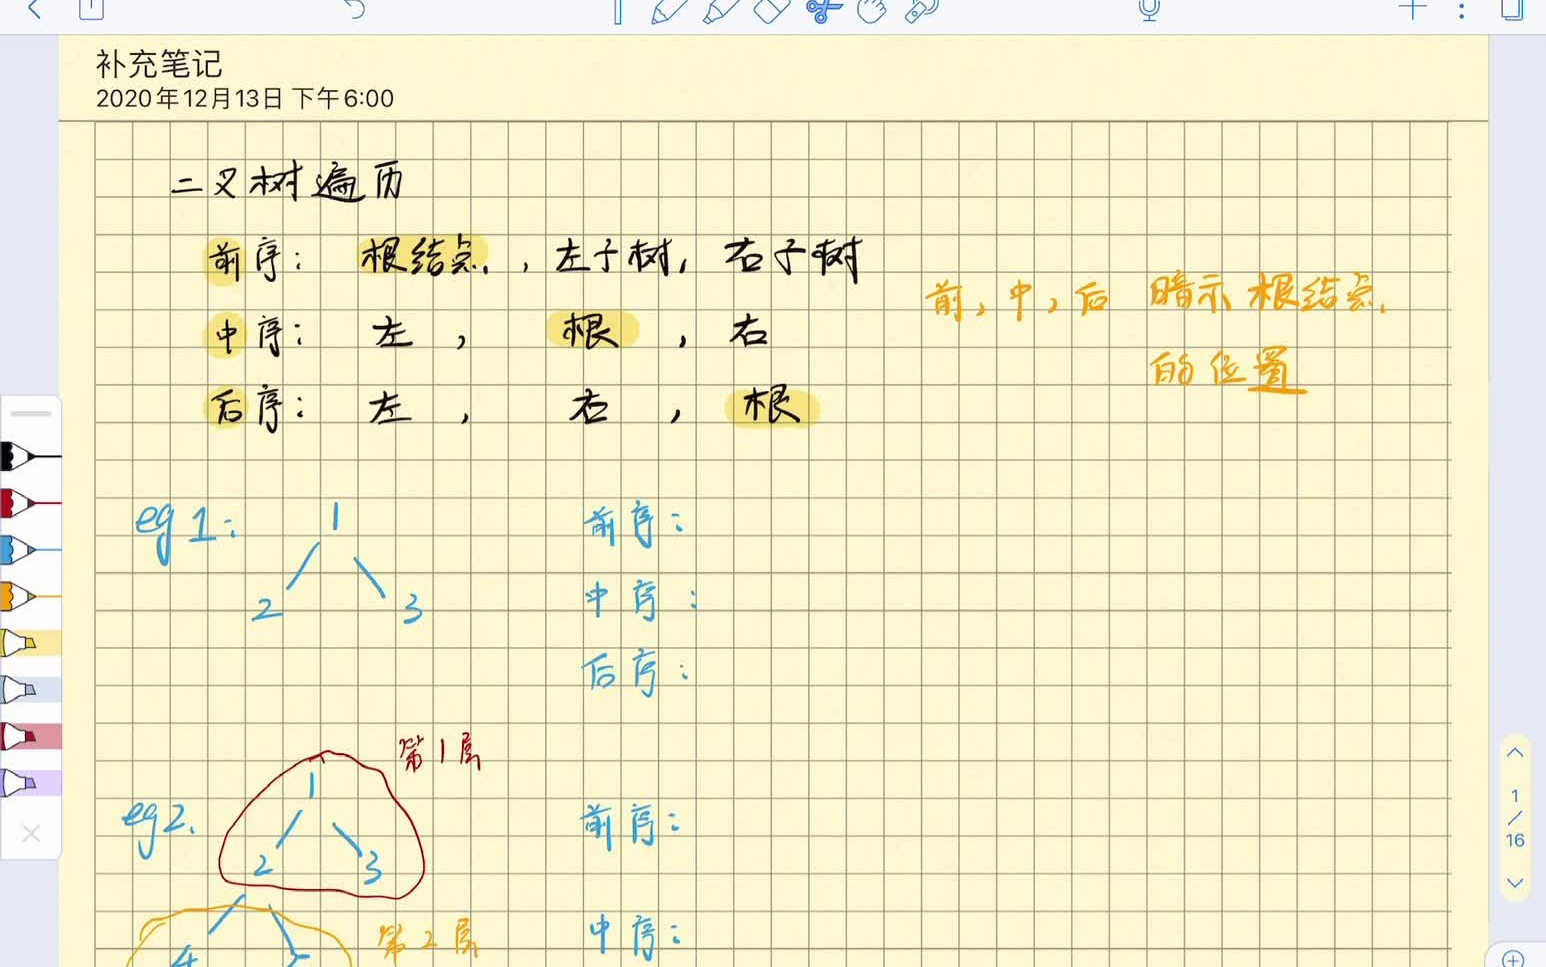 补充笔记
2020年12月13日 下午6:00
二叉树遍历
前序： 根结点，左子树，右子树
中序： 左 ， 根 ，右
后序： 左 ， 右 ，根
前，中，后 暗示根结点
的位置
eg 1：
1
2 3
前序：
中序：
后序：
第1层
eg2.
1
2 3
前序：
第2层
中序：
4
1
/
16